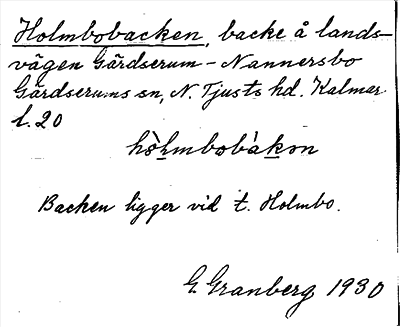 Holmbobacken, backe å lands-
vägen Gärdserum - Nannersbo
Gärdserums sn, N. Tjusts hd. Kalmar
l. 20
hòlmbobàkən
Backen ligger vid t. Holmbo.
G. Granberg 1930